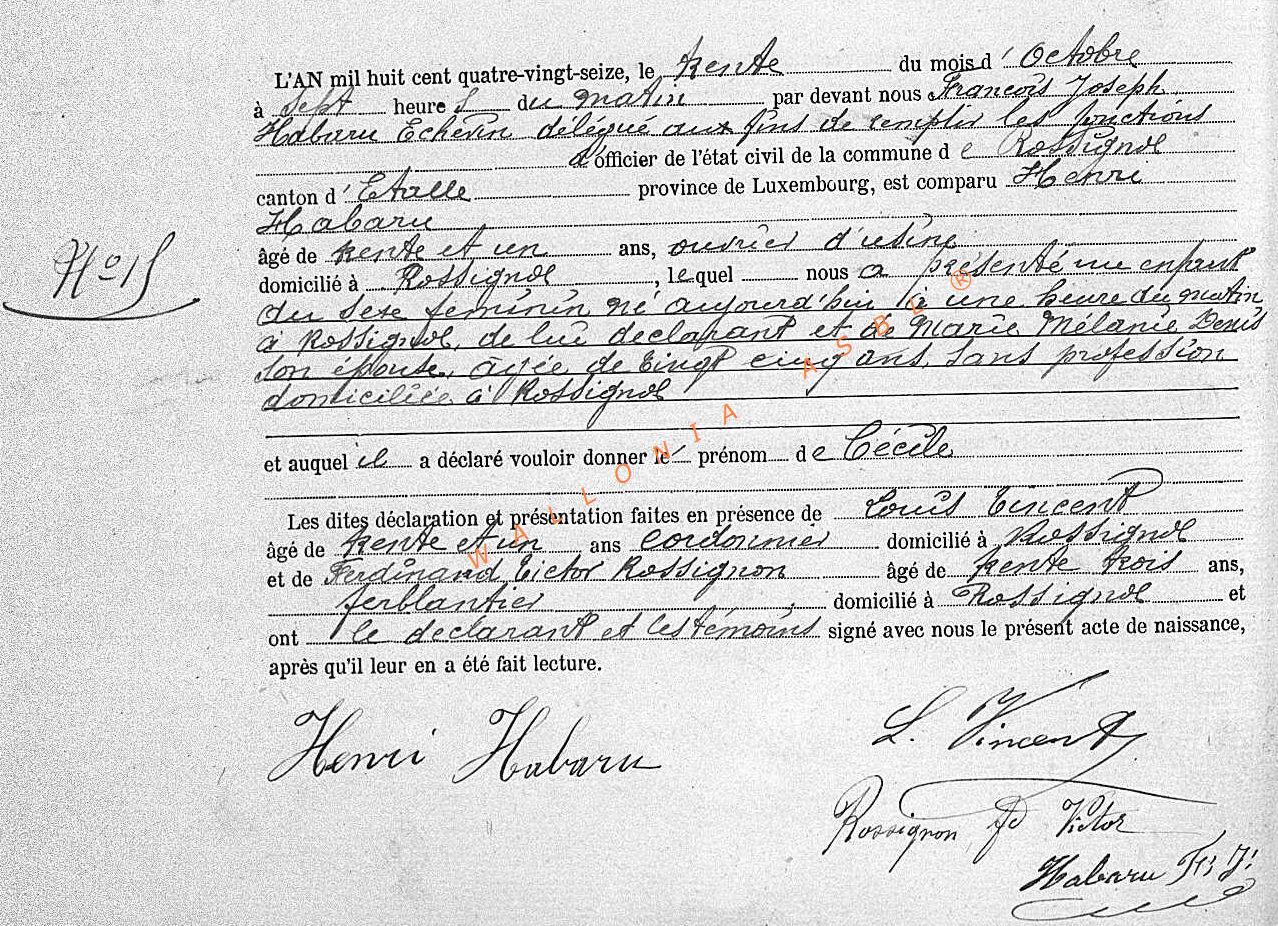 L'AN mil huit cent quatre-vingt-seize, le trente du mois d' Octobre
à Sept heure s du matin par devant nous François Joseph
Habaru Echevin délégué aux fins de remplir les fonctions
d'officier de l'état civil de la commune d e Rossignol
canton d' Etalle province de Luxembourg, est comparu Henri
Habaru
âgé de trente et un ans, ouvrier d'usine
domicilié à Rossignol, lequel nous a présenté un enfant
du sexe feminin né aujourd'hui à une heure du matin
à Rossignol, de lui declarant et de Marie Mélanie Denis
son épouse, agée de vingt cinq ans, sans profession
domiciliée à Rossignol
et auquel il a déclaré vouloir donner le prénom de Cécile
Les dites déclaration et présentation faites en présence de Louis Vincent
âgé de trente et un ans cordonnier domicilié à Rossignol
et de Ferdinand Victor Rossignon âgé de trente trois ans,
ferblantier, domicilié à Rossignol et
ont le declarant et les témoins signé avec nous le présent acte de naissance,
après qu'il leur en a été fait lecture.
Henri Habaru
L. Vincent
Rossignon Fd Victor
Habaru Fs J.
WALLONIA ASBL ®